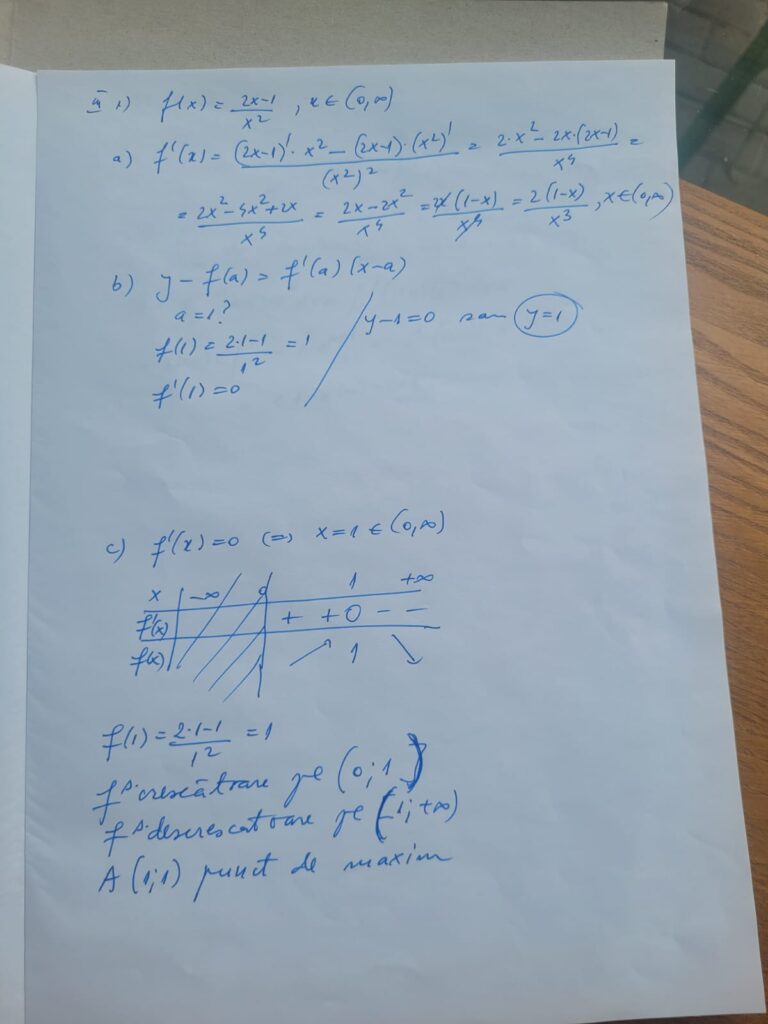 III 1) f(x) = (2x-1)/x², x ∈ (0,∞)
a) f'(x) = ((2x-1)'·x² - (2x-1)·(x²)')/(x²)² = (2·x² - 2x·(2x-1))/x⁴ =
= (2x² - 4x² + 2x)/x⁴ = (2x - 2x²)/x⁴ = 2x(1-x)/x⁴ = 2(1-x)/x³, x ∈ (0,∞)
b) y - f(a) = f'(a)(x-a)
a = 1?
f(1) = (2·1-1)/1² = 1
f'(1) = 0
y - 1 = 0 sau y = 1
c) f'(x) = 0 (=) x = 1 ∈ (0,∞)
x -∞ 0 1 +∞
f'(x) + + 0 - -
f(x) ↗ 1 ↘
f(1) = (2·1-1)/1² = 1
f s. crescătoare pe (0;1)
f s. descrescatoare pe (1;+∞)
A (1;1) punct de maxim